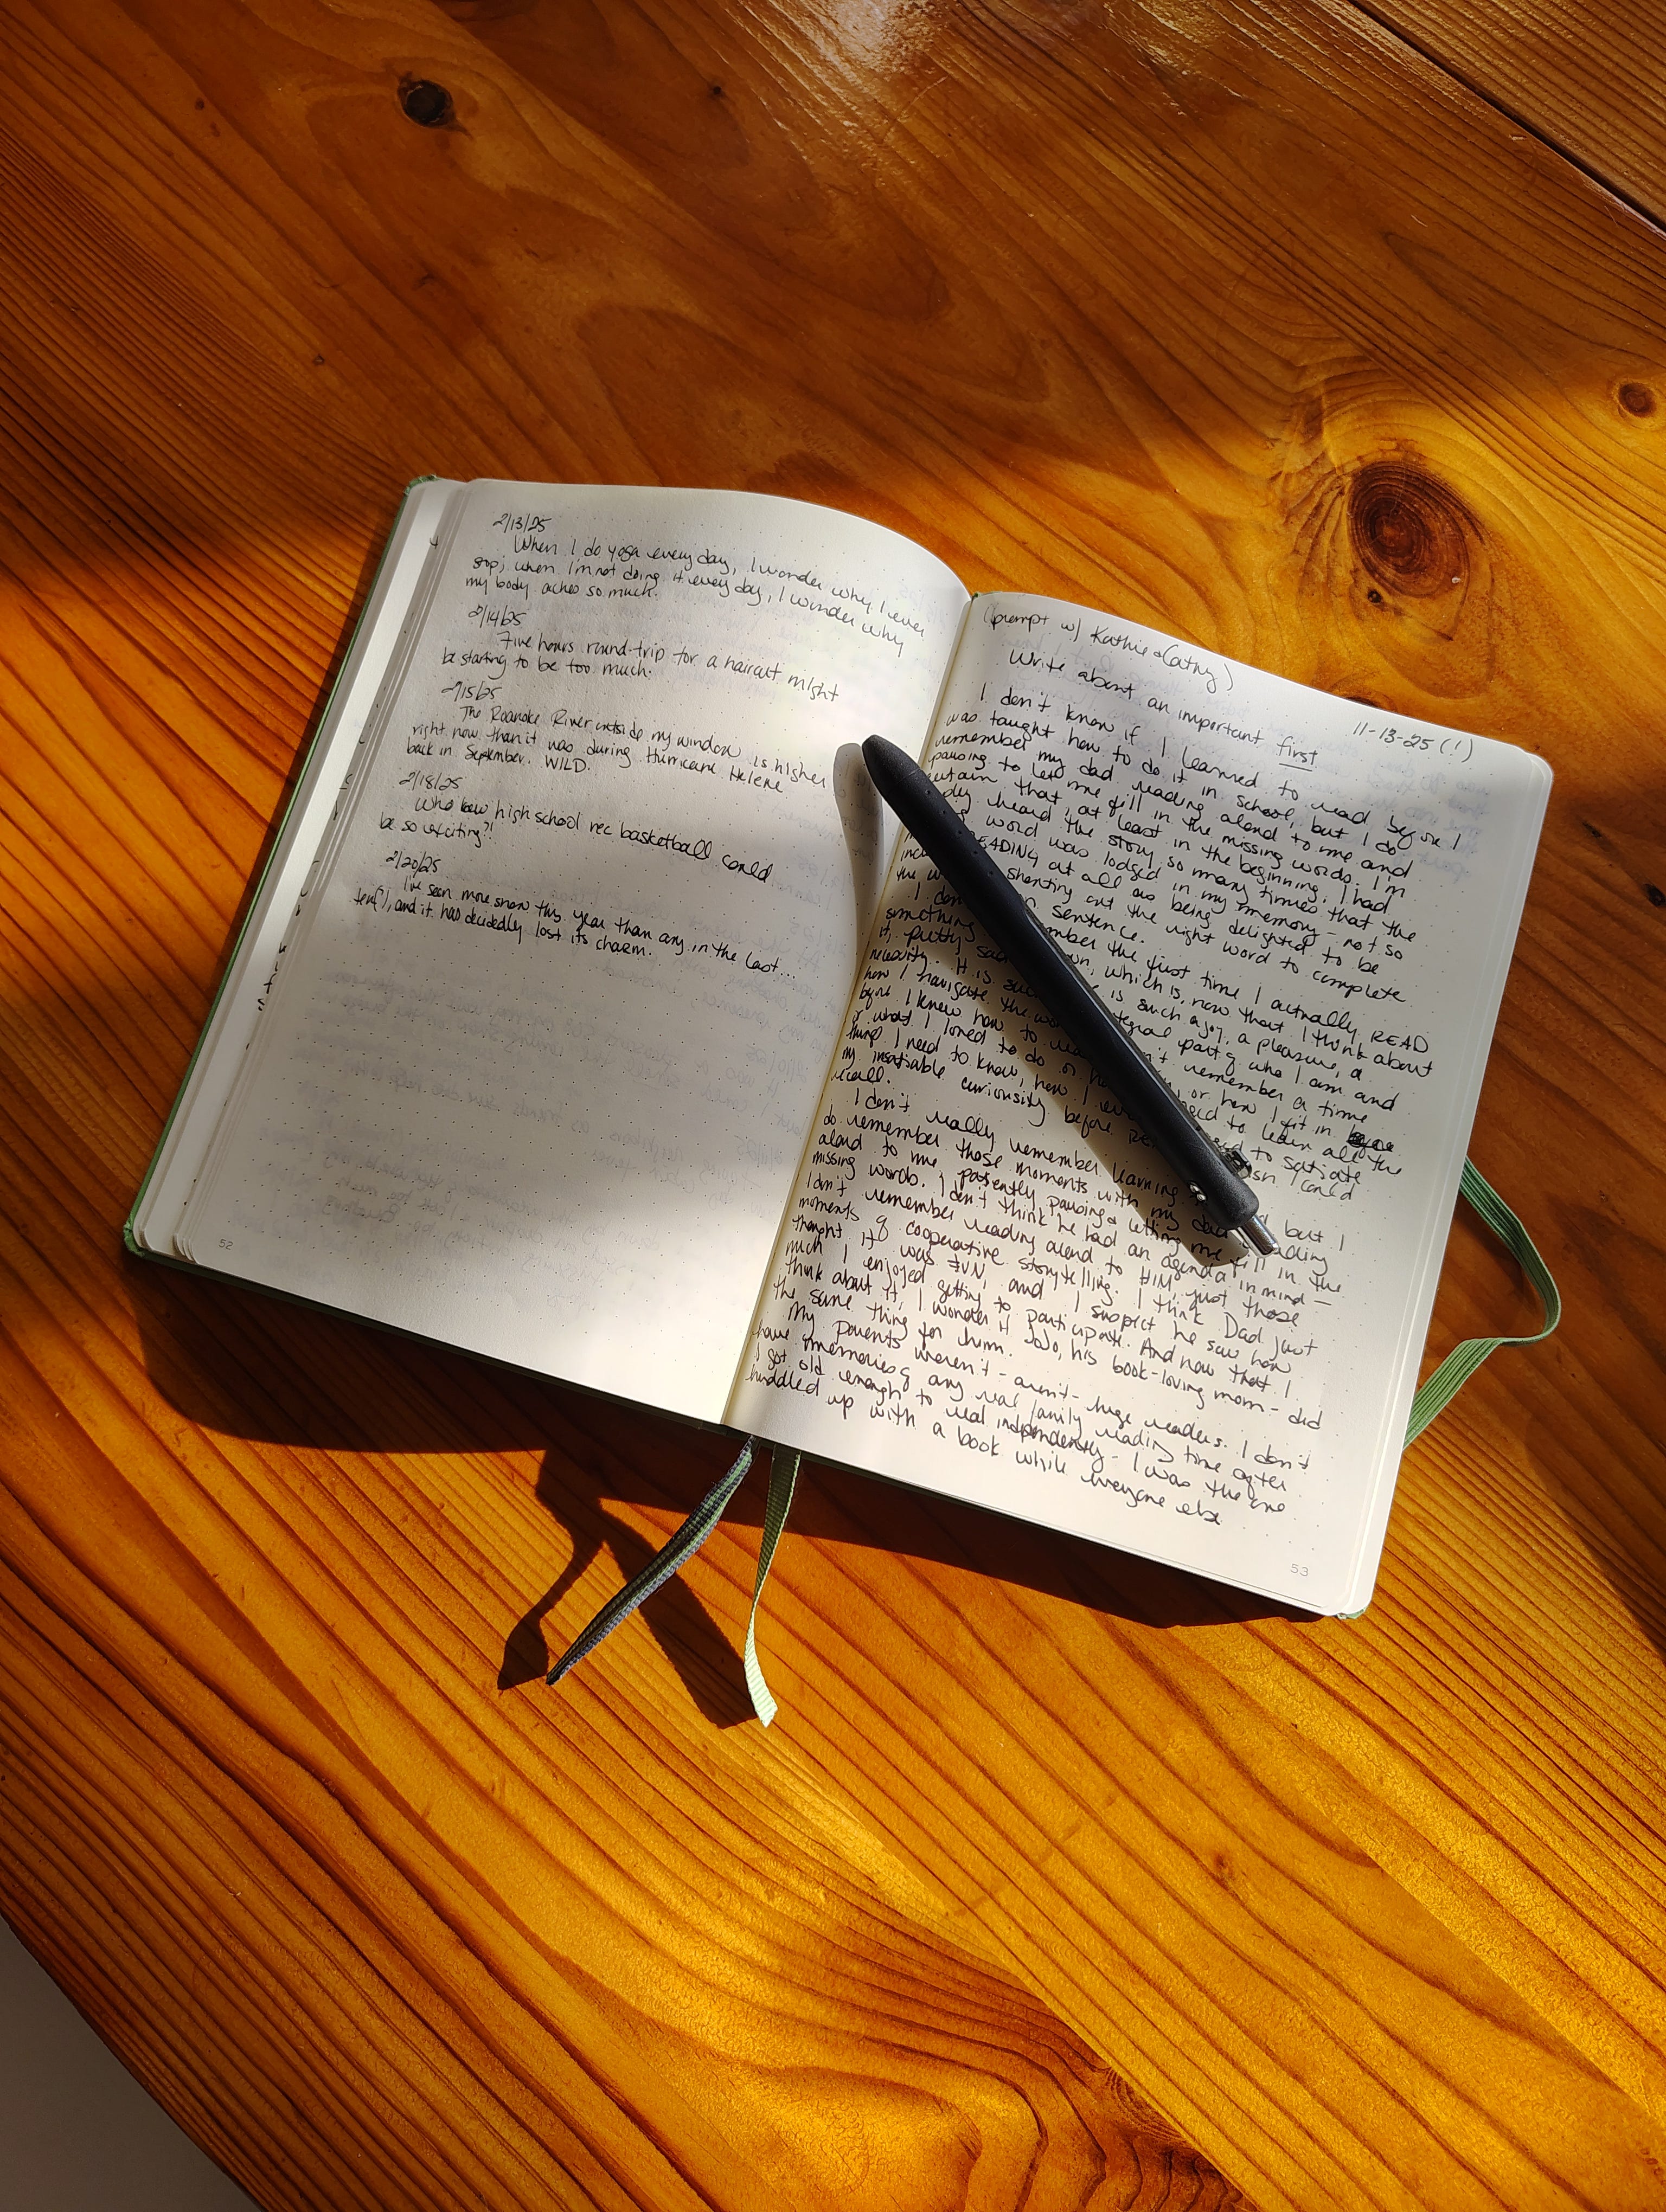 2/13/25
When I do yoga every day, I wonder why I ever
stop; when I'm not doing it every day, I wonder why
my body aches so much.
2/14/25
Five hours round-trip for a haircut might
be starting to be too much.
2/15/25
The Roanoke River outside my window is higher
right now than it was during Hurricane Helene
back in September. WILD.
2/18/25
Who knew high school rec basketball could
be so exciting?!
2/20/25
I've seen more snow this year than any in the last...
ten(?), and it has decidedly lost its charm.
52
(prompt w/ Kathie & Cathy)
11-13-25 (!)
Write about an important first
I don't know if I learned to read before I
was taught how to do it in school, but I do
remember my dad reading aloud to me and
pausing to let me fill in the missing words. I'm
certain that, at least in the beginning, I had
heard the story so many times that the
word was lodged in my memory - not so
READING at all as being delighted to be
shouting out the right word to complete
the sentence.
I don't remember the first time I actually READ
something own, which is, now that I think about
it, pretty sad. is such a joy, a pleasure, a
necessity. It is integral part of who I am and
how I navigate the world. remember a time
before I knew how to or how I fit in
or what I loved to do or to learn all the
things I need to know, how I to satiate
my insatiable curiosity before I could
recall.
I don't really remember learning but I
do remember those moments with my dad reading
aloud to me, patiently pausing & letting me fill in the
missing words. I don't think he had an agenda in mind -
I don't remember reading aloud to HIM, just those
moments of cooperative storytelling. I think Dad just
thought it was FUN, and I suspect he saw how
much I enjoyed getting to participate. And now that I
think about it, I wonder if JoJo, his book-loving mom - did
the same thing for him.
My parents weren't - aren't - huge readers. I don't
have memories of any real family reading time after
I got old enough to read independently - I was the one
huddled up with a book while everyone else
53